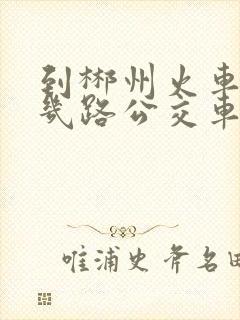 到郴州火車
幾路公交車
唯浦史斧名